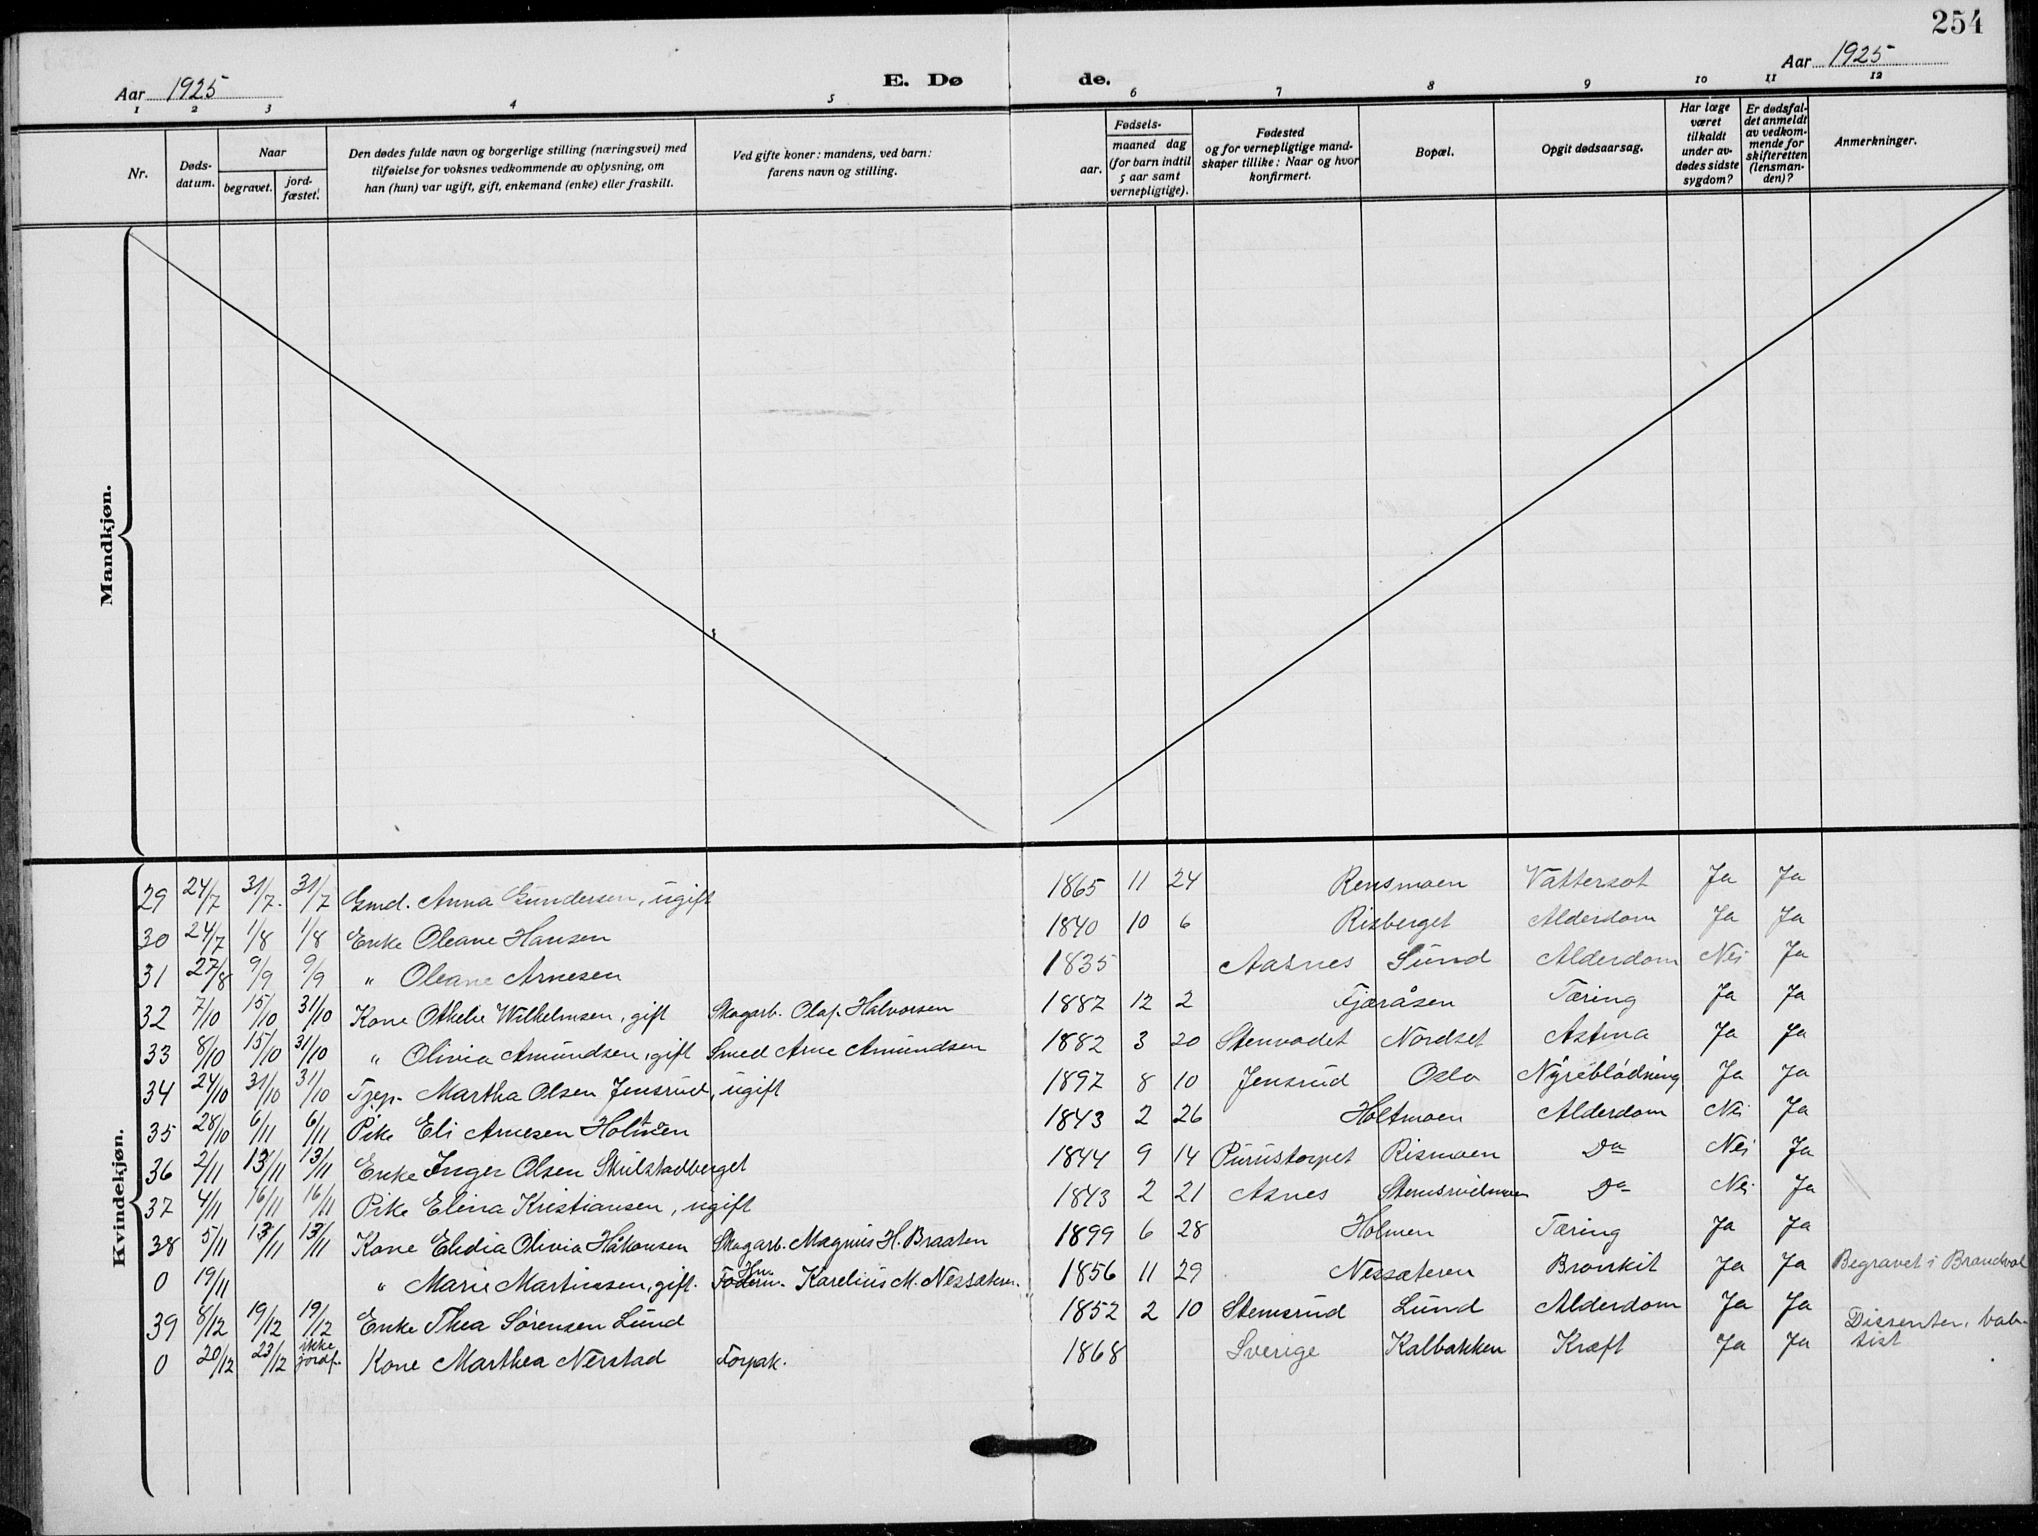 254
Aar 1925
E. Dø de.
Aar 1925
1 2 3 4 5 6 7 8 9 10 11 12
Nr.
Døds-
datum.
Naar
begravet.
jord-
fæstet.
Den dødes fulde navn og borgerlige stilling (næringsvei) med
tilføielse for voksnes vedkommende av oplysning, om
han (hun) var ugift, gift, enkemand (enke) eller fraskilt.
Ved gifte koner: mandens, ved barn:
farens navn og stilling.
Fødsels-
aar.
maaned dag
(for barn indtil
5 aar samt
vernepligtige).
Fødested
og for vernepligtige mand-
skaper tillike: Naar og hvor
konfirmert.
Bopæl.
Opgit dødsaarsag.
Har læge
været
tilkaldt
under av-
dødes sidste
sygdom?
Er dødsfal-
det anmeldt
av vedkom-
mende for
skifteretten
(lensman-
den)?
Anmerkninger.
Mandkjøn.
Kvindekjøn.
29 24/7 31/7. 31/7 Gmd. Anna Gundersen, ugift 1865 11 24 Rensmoen Vattersot Ja Ja
30 24/7 1/8 1/8 Enke Oleane Hansen 1840 10 6 Risberget Alderdom Ja Ja
31 27/8 9/9 9/9 " Oleane Arnesen 1835 Aasnes Sund Alderdom Nei Ja
32 7/10 15/10 31/10 Kone Othelie Wilhelmsen, gift Skogarb. Olaf Halvorsen 1887 12 2 Fjæråsen Tæring Ja Ja
33 8/10 15/10 31/10 " Olivia Amundsen, gift Smed Arne Amundsen 1882 3 20 Stenvadet Nordset Astma Ja Ja
34 24/10 31/10 31/10 Tjep. Martha Olsen Jensrud, ugift 1897 8 10 Jensrud Oslo Nyreblødning Ja Ja
35 28/10 6/11 6/11 Pike Eli Arnesen Holtmoen 1843 2 26 Holtmoen Alderdom Nei Ja
36 2/11 13/11 13/11 Enke Inger Olsen Skulstadberget 1844 9 14 Purustorpet Rismoen Do Nei Ja
37 4/11 16/11 16/11 Pike Elina Kristiansen, ugift 1843 2 21 Asnes Stemsrudmoen Do Nei Ja
38 5/11 13/11 13/11 Kone Elidia Olivia Håkonsen Skogarb. Magnus H. Braaten 1899 6 28 Holmen Tæring Ja Ja
0 19/11 " Marie Martinsen, gift. Karelius M. Nessæteren. 1856 11 29 Nessæteren Bronkit Ja Ja Begravet i Brandval
39 8/12 19/12 19/12 Enke Thea Sørensen Lund 1852 2 10 Stemsrud Lund Alderdom Ja Ja
0 20/12 23/12 ikke jordf. Kone Marthea Nerstad Forpak. 1868 Sverige Kalbakken Kræft Ja Ja Dissenter, bab-
tist